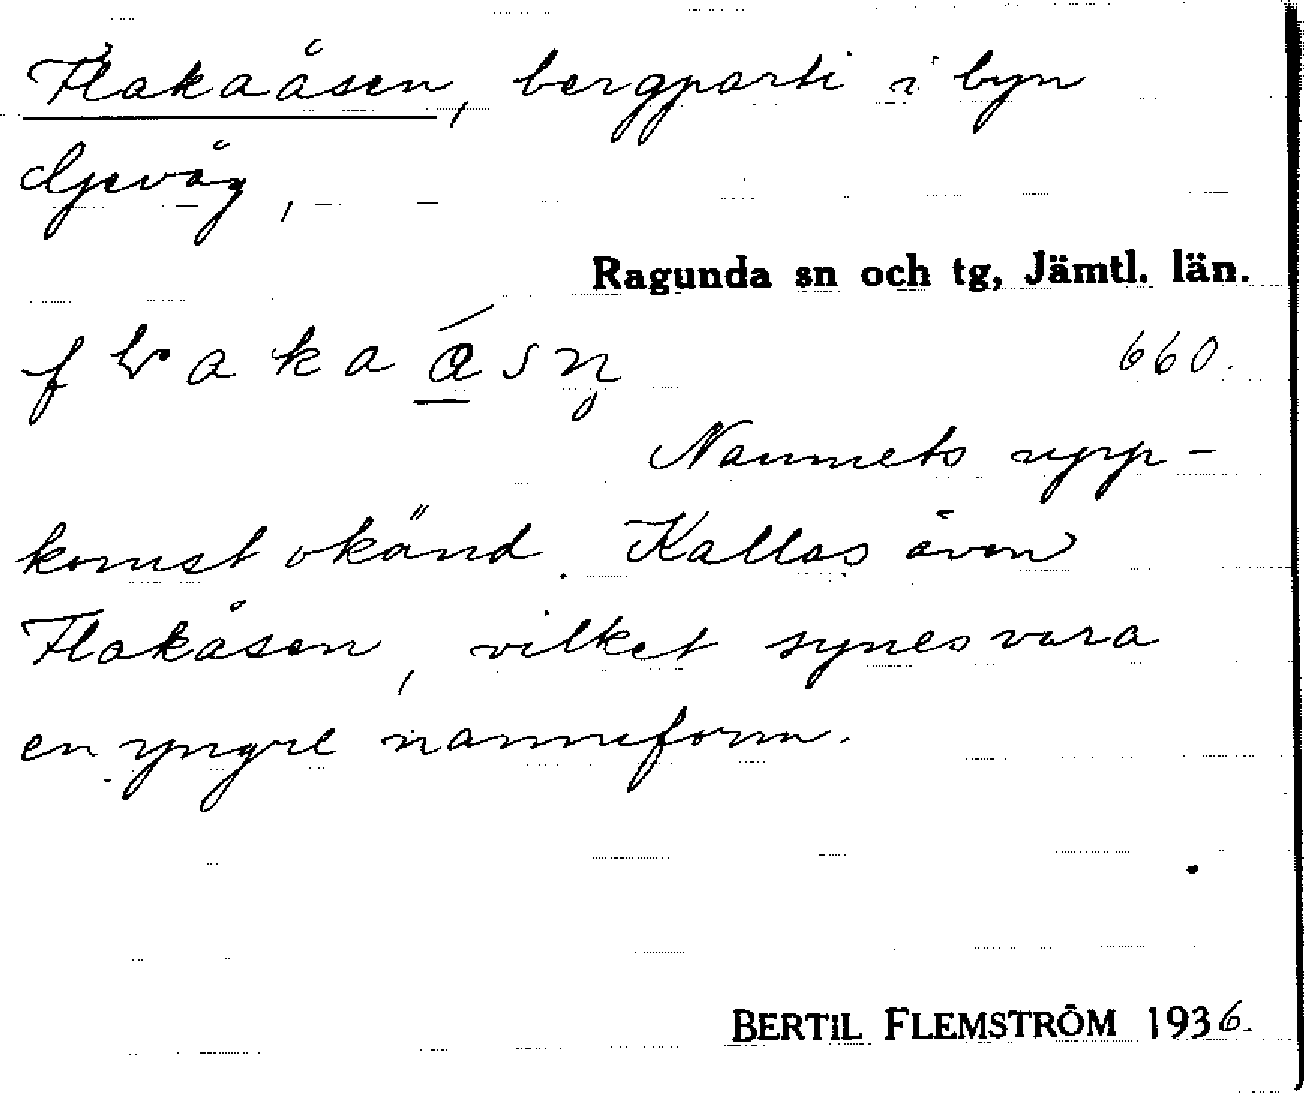 Flakaåsen, bergparti i byn
Gevåg,
Ragunda sn och tg, Jämtl. län.
660.
Namnets upp-
komst okänd. Kallas även
Flakåsen, vilket synes vara
en yngre namnform.
BERTIL FLEMSTRÖM 1936.